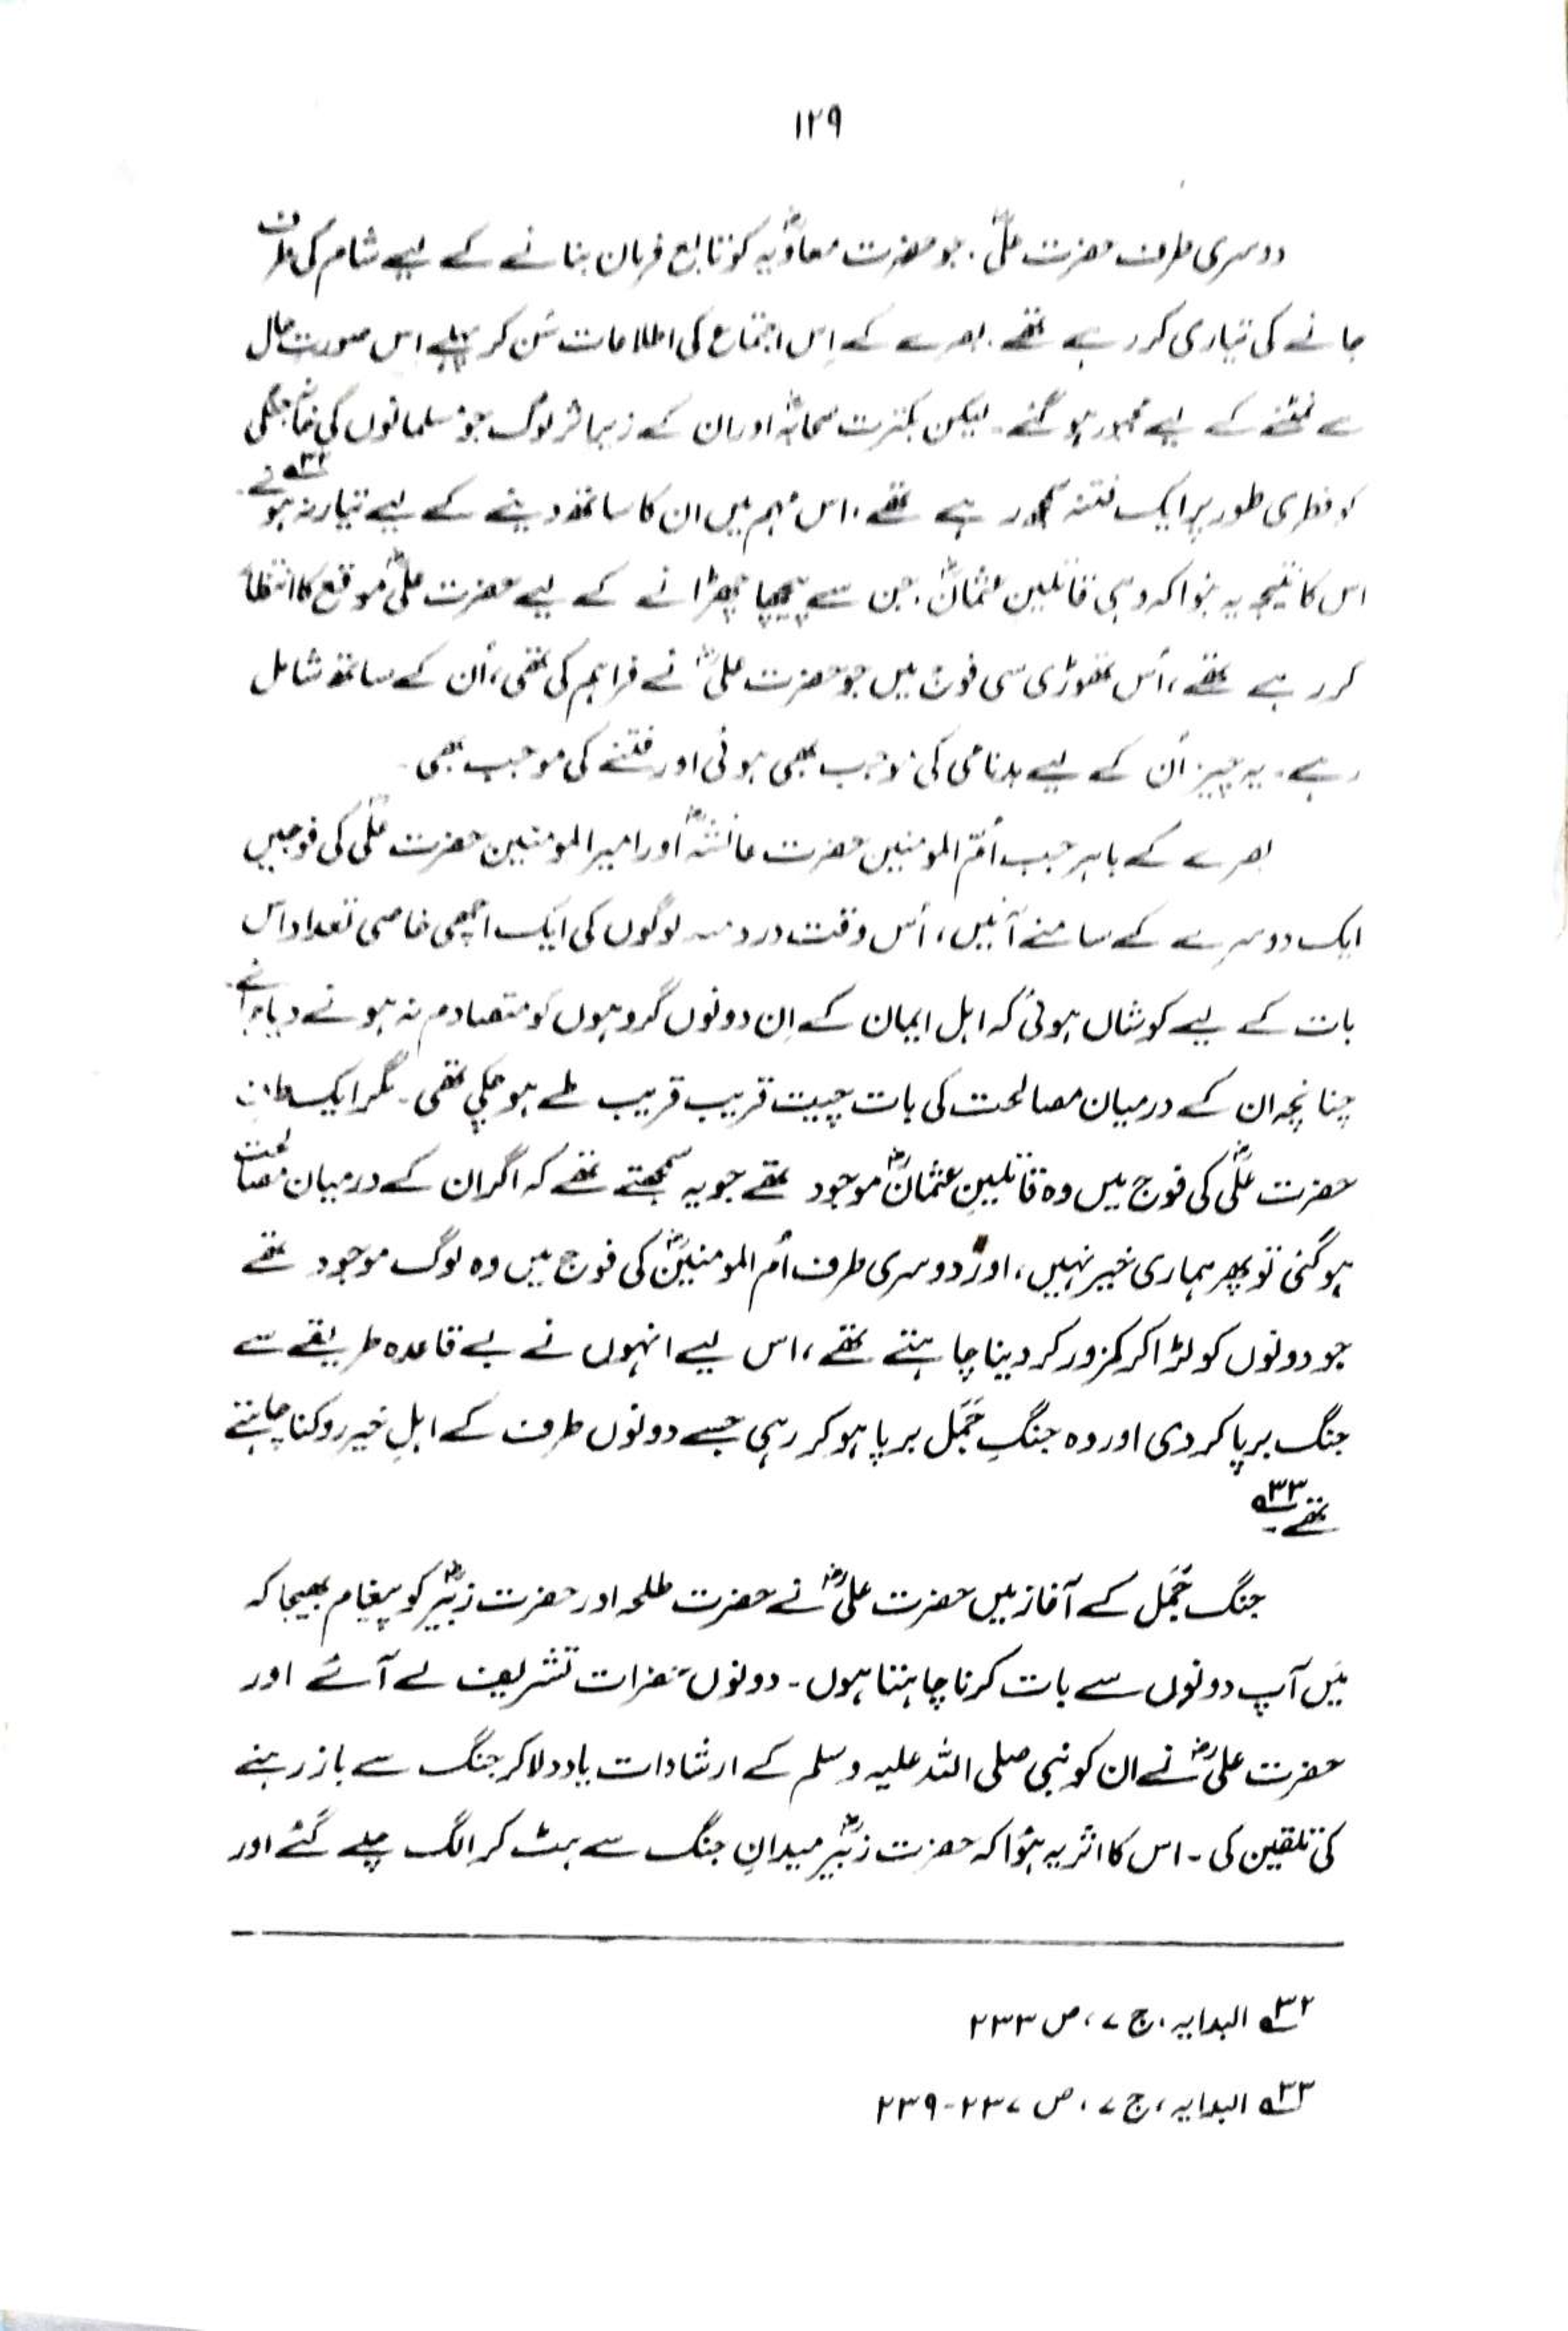 ۱۲۹
دوسری طرف حضرت علیؓ، جو حضرت معاویہؓ کو تابع فرمان بنانے کے لیے شام کی طرف
جانے کی تیاری کر رہے تھے، بصرے کے اِس اجتماع کی اطلاعات سُن کر پہلے اس صورت حال
سے نمٹنے کے لیے مجبور ہو گئے۔ لیکن بکثرت صحابہؓ اور ان کے زیر اثر لوگ جو مسلمانوں کی خانہ جنگی
کو فطری طور پر ایک فتنہ سمجھ رہے تھے، اس مہم میں ان کا ساتھ دینے کے لیے تیار نہ ہوئے۳۲۔
اس کا نتیجہ یہ ہُوا کہ وہی قاتلین عثمانؓ، جن سے پیچھا چھڑانے کے لیے حضرت علیؓ موقع کا انتظار
کر رہے تھے، اُس تھوڑی سی فوج میں جو حضرت علیؓ نے فراہم کی تھی، اُن کے ساتھ شامل
رہے۔ یہ چیز اُن کے لیے بدنامی کی موجب بھی ہوئی اور فتنے کی موجب بھی۔
بصرے کے باہر جب اُمّ المومنین حضرت عائشہؓ اور امیر المومنین حضرت علیؓ کی فوجیں
ایک دوسرے کے سامنے آئیں، اُس وقت دردمند لوگوں کی ایک اچھی خاصی تعداد اس
بات کے لیے کوشاں ہوئی کہ اہل ایمان کے اِن دونوں گروہوں کو متصادم نہ ہونے دیا جائے۔
چنانچہ ان کے درمیان مصالحت کی بات چیت قریب قریب طے ہو چکی تھی۔ مگر ایک طرف
حضرت علیؓ کی فوج میں وہ قاتلینِ عثمانؓ موجود تھے جو یہ سمجھتے تھے کہ اگر ان کے درمیان مصالحت
ہو گئی تو پھر ہماری خیر نہیں، اور دوسری طرف اُم المومنینؓ کی فوج میں وہ لوگ موجود تھے
جو دونوں کو لڑا کر کمزور کر دینا چاہتے تھے، اس لیے انہوں نے بے قاعدہ طریقے سے
جنگ برپا کر دی اور وہ جنگِ جَمَل برپا ہو کر رہی جسے دونوں طرف کے اہلِ خیر روکنا چاہتے
تھے۳۳۔
جنگ جَمَل کے آغاز میں حضرت علیؓ نے حضرت طلحہ اور حضرت زبیرؓ کو پیغام بھیجا کہ
میَں آپ دونوں سے بات کرنا چاہتا ہوں۔ دونوں حضرات تشریف لے آئے اور
حضرت علیؓ نے ان کو نبی صلی اللہ علیہ وسلم کے ارشادات یاد دلا کر جنگ سے باز رہنے
کی تلقین کی۔ اس کا اثر یہ ہُوا کہ حضرت زبیرؓ میدانِ جنگ سے ہٹ کر الگ چلے گئے اور
۳۲ البدایہ، ج ۷، ص ۲۳۳
۳۳ البدایہ، ج ۷، ص ۲۳۷-۲۳۹